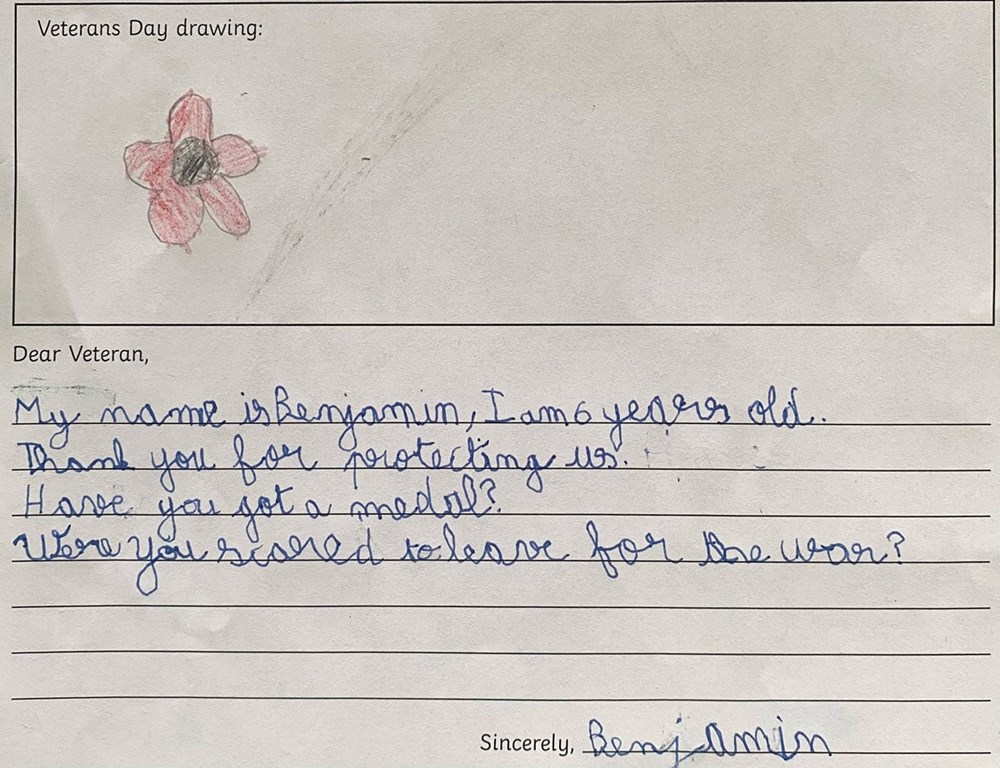 Veterans Day drawing:
Dear Veteran,
My name is Benjamin, I am 6 years old.
Thank you for protecting us.
Have you got a medal?
Were you scared to leave for the war?
Sincerely, Benjamin